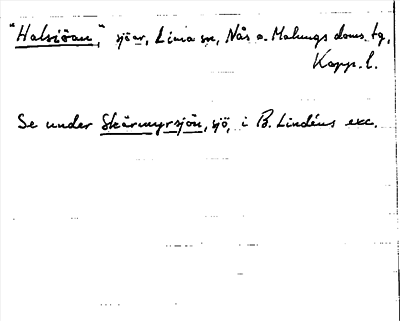 "Halsiöan", sjöar, Lima sn, Nås o. Malungs doms. tg,
Kopp. l.
Se under Skärmyrsjön, sjö, i B. Lindéns exc.